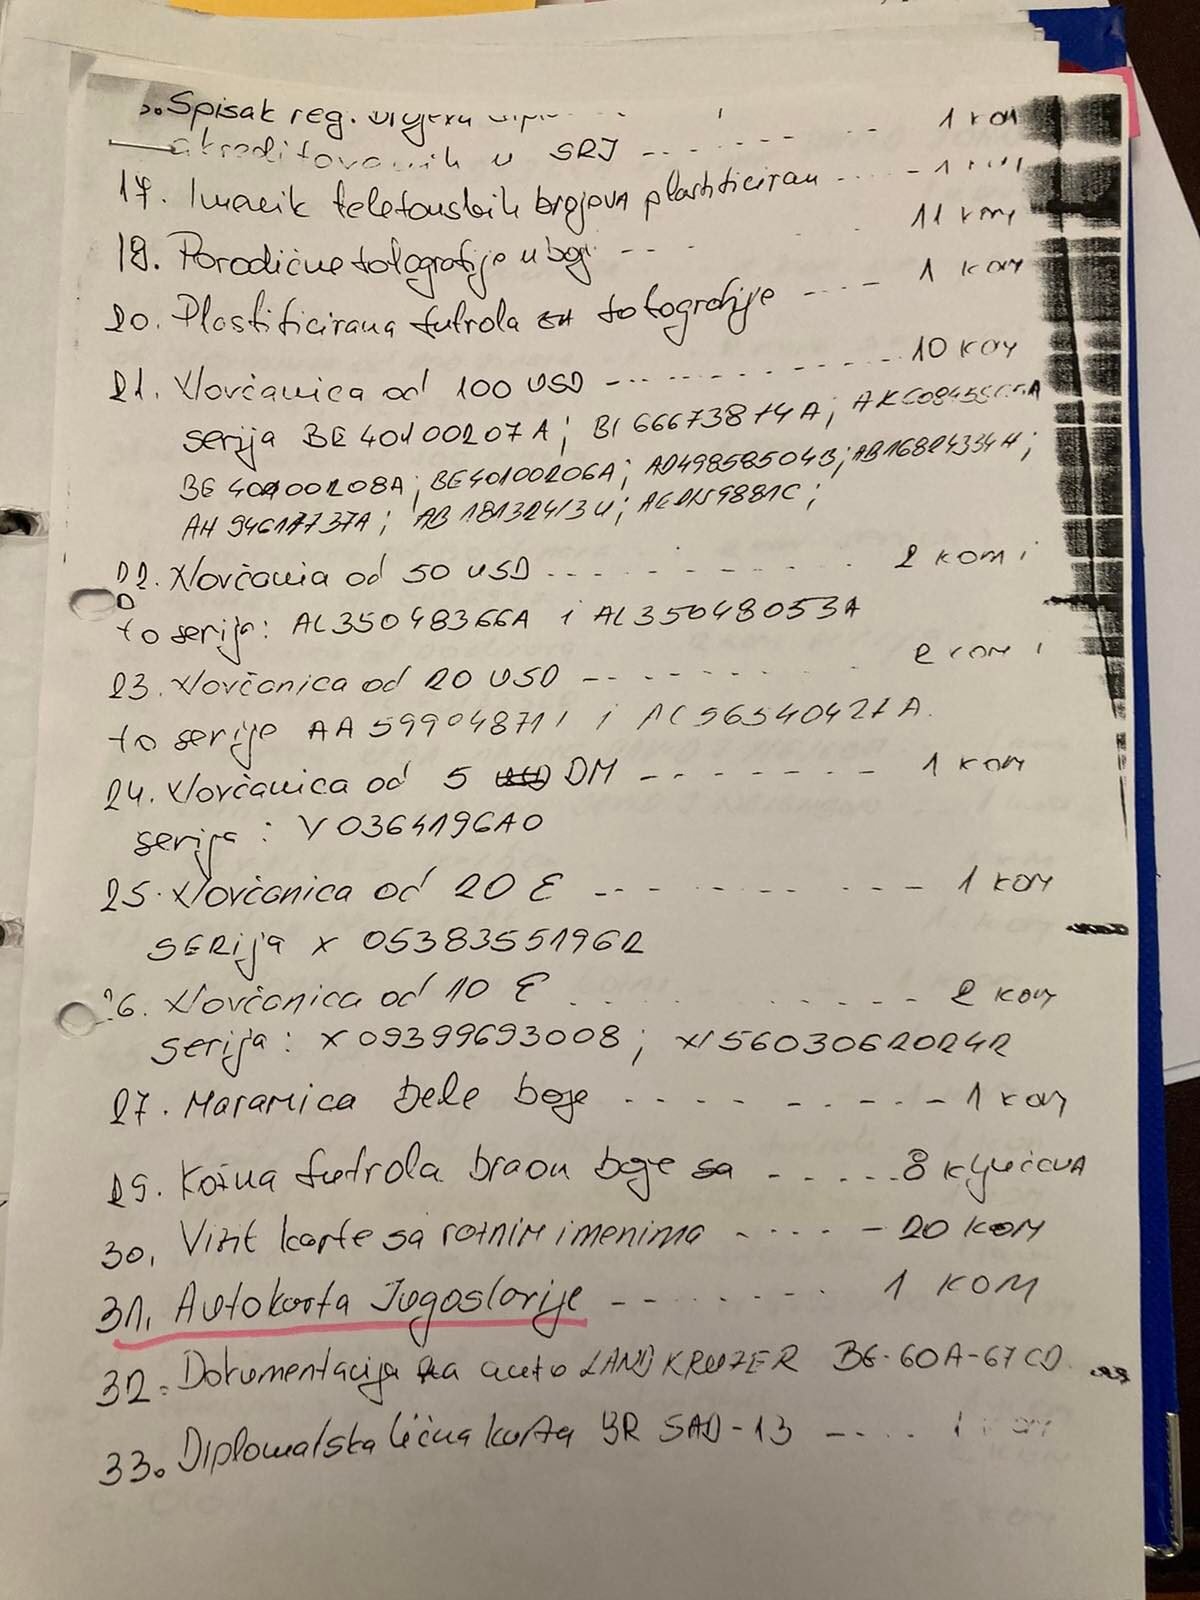 Spisak reg. 1 kom
akreditovanih u SRJ - - - - - -
17. Imenik telefonskih brojeva plastificiran - - - - 1
19. Porodične fotografije u boji - - - 11 kom
20. Plastificirana futrola za fotografije - - - - 1 kom
21. Novčanica od 100 USD - - - - - - - - 10 kom
serija BE 40100207A; BI 66673874A;
BE 40100208A; BE40100206A; AD49858504B; AB16824334H;
AH 94617737A; AB
22. Novčania od 50 USD - - - - - - - - 2 kom i
to serija: AL35048366A i AL35048053A
23. Novčanica od 20 USD - - - - - - - 2 kom i
to serije AA i AC56540427A.
24. Novčanica od 5 DM - - - - - - - 1 kom
serija: Y0364196A0
25. Novčanica od 20 E - - - - - - - - 1 kom
SERIja X 05383551962
26. Novčanica od 10 E - - - - - - - - - 2 kom
serija: X 09399693008; N56030620242
27. Maramica bele boje - - - - - - - - 1 kom
29. Kožna futrola braon boje sa - - - - - 8 ključeva
30. Vizit karte sa raznim imenima - - - - - 20 kom
31. Autokarta Jugoslavije - - - - - - - 1 KOM
32. Dokumentacija za auto LAND KRUZER BG-60A-67 CD
33. Diplomatska lična karta BR SAD-13 - - - - 1 kom